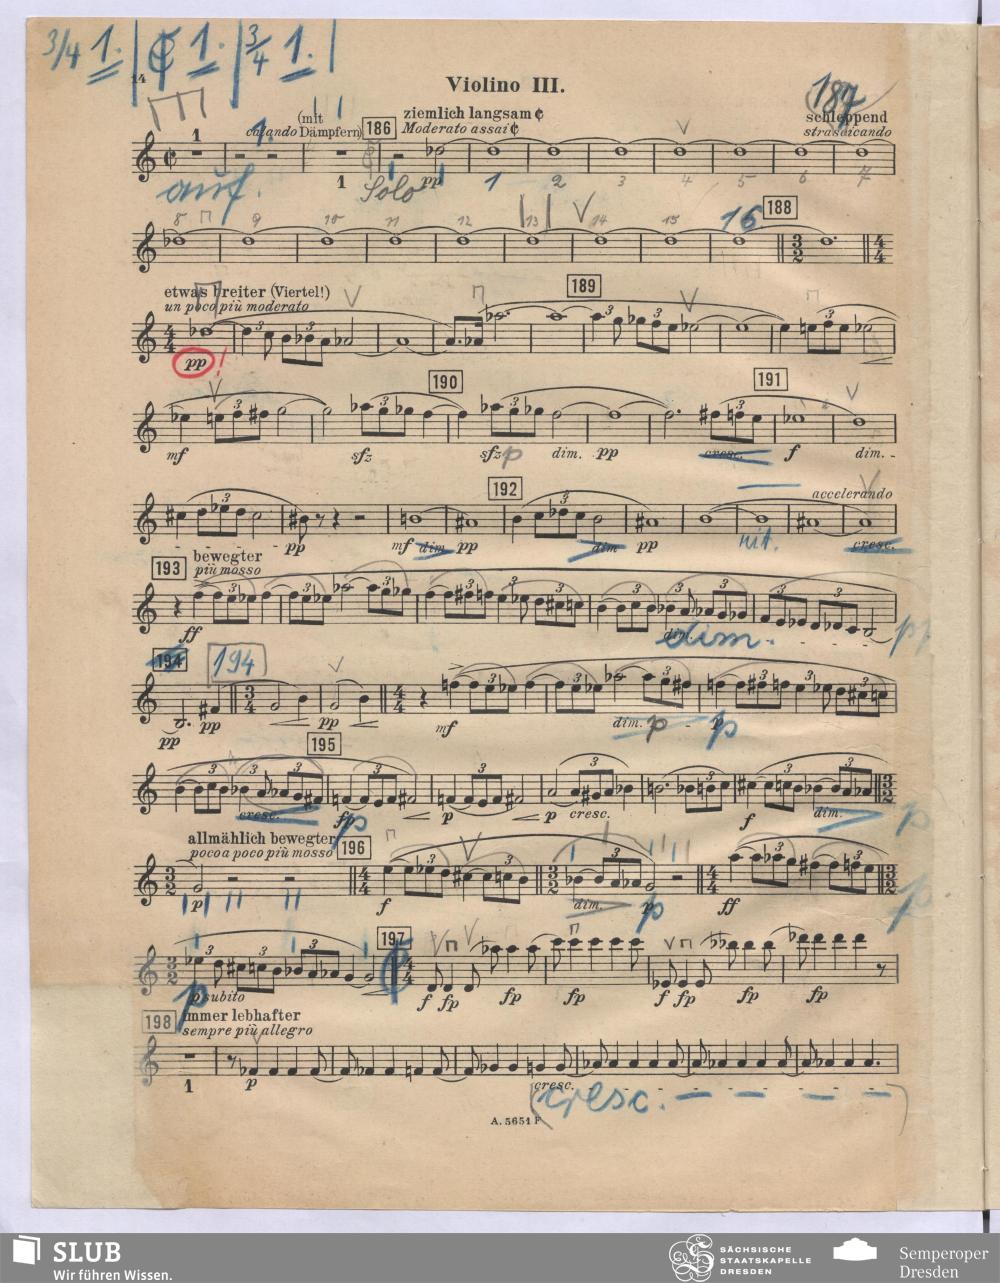 3/4 1. | ¢ 1. | 3/4 1. |
14
Violino III.
187
1 calando (mit Dämpfern) 186 ziemlich langsam ¢ schleppend
1. Moderato assai ¢ strascicando
auf. 1 Solo pp 1 2 3 4 5 6 7
8 9 10 11 12 13 14 15 16 188
etwas breiter (Viertel!) 189
un poco più moderato
pp !
190 191
mf sfz sfz p dim. pp cresc. f dim.
192 accelerando
pp mf dim pp dim pp rit. cresc.
193 bewegter
più mosso
ff dim. dim. pp
194 194
pp pp pp mf dim. p p
195
cresc. fp p p p cresc. f dim. p
allmählich bewegter
poco a poco più mosso 196
p f dim. p ff p
197
p subito f fp fp fp f fp fp fp
198 immer lebhafter
sempre più allegro
1 p cresc.
(cresc. - - - -)
A. 5651 F
SLUB
Wir führen Wissen.
SÄCHSISCHE
STAATSKAPELLE
DRESDEN
Semperoper
Dresden